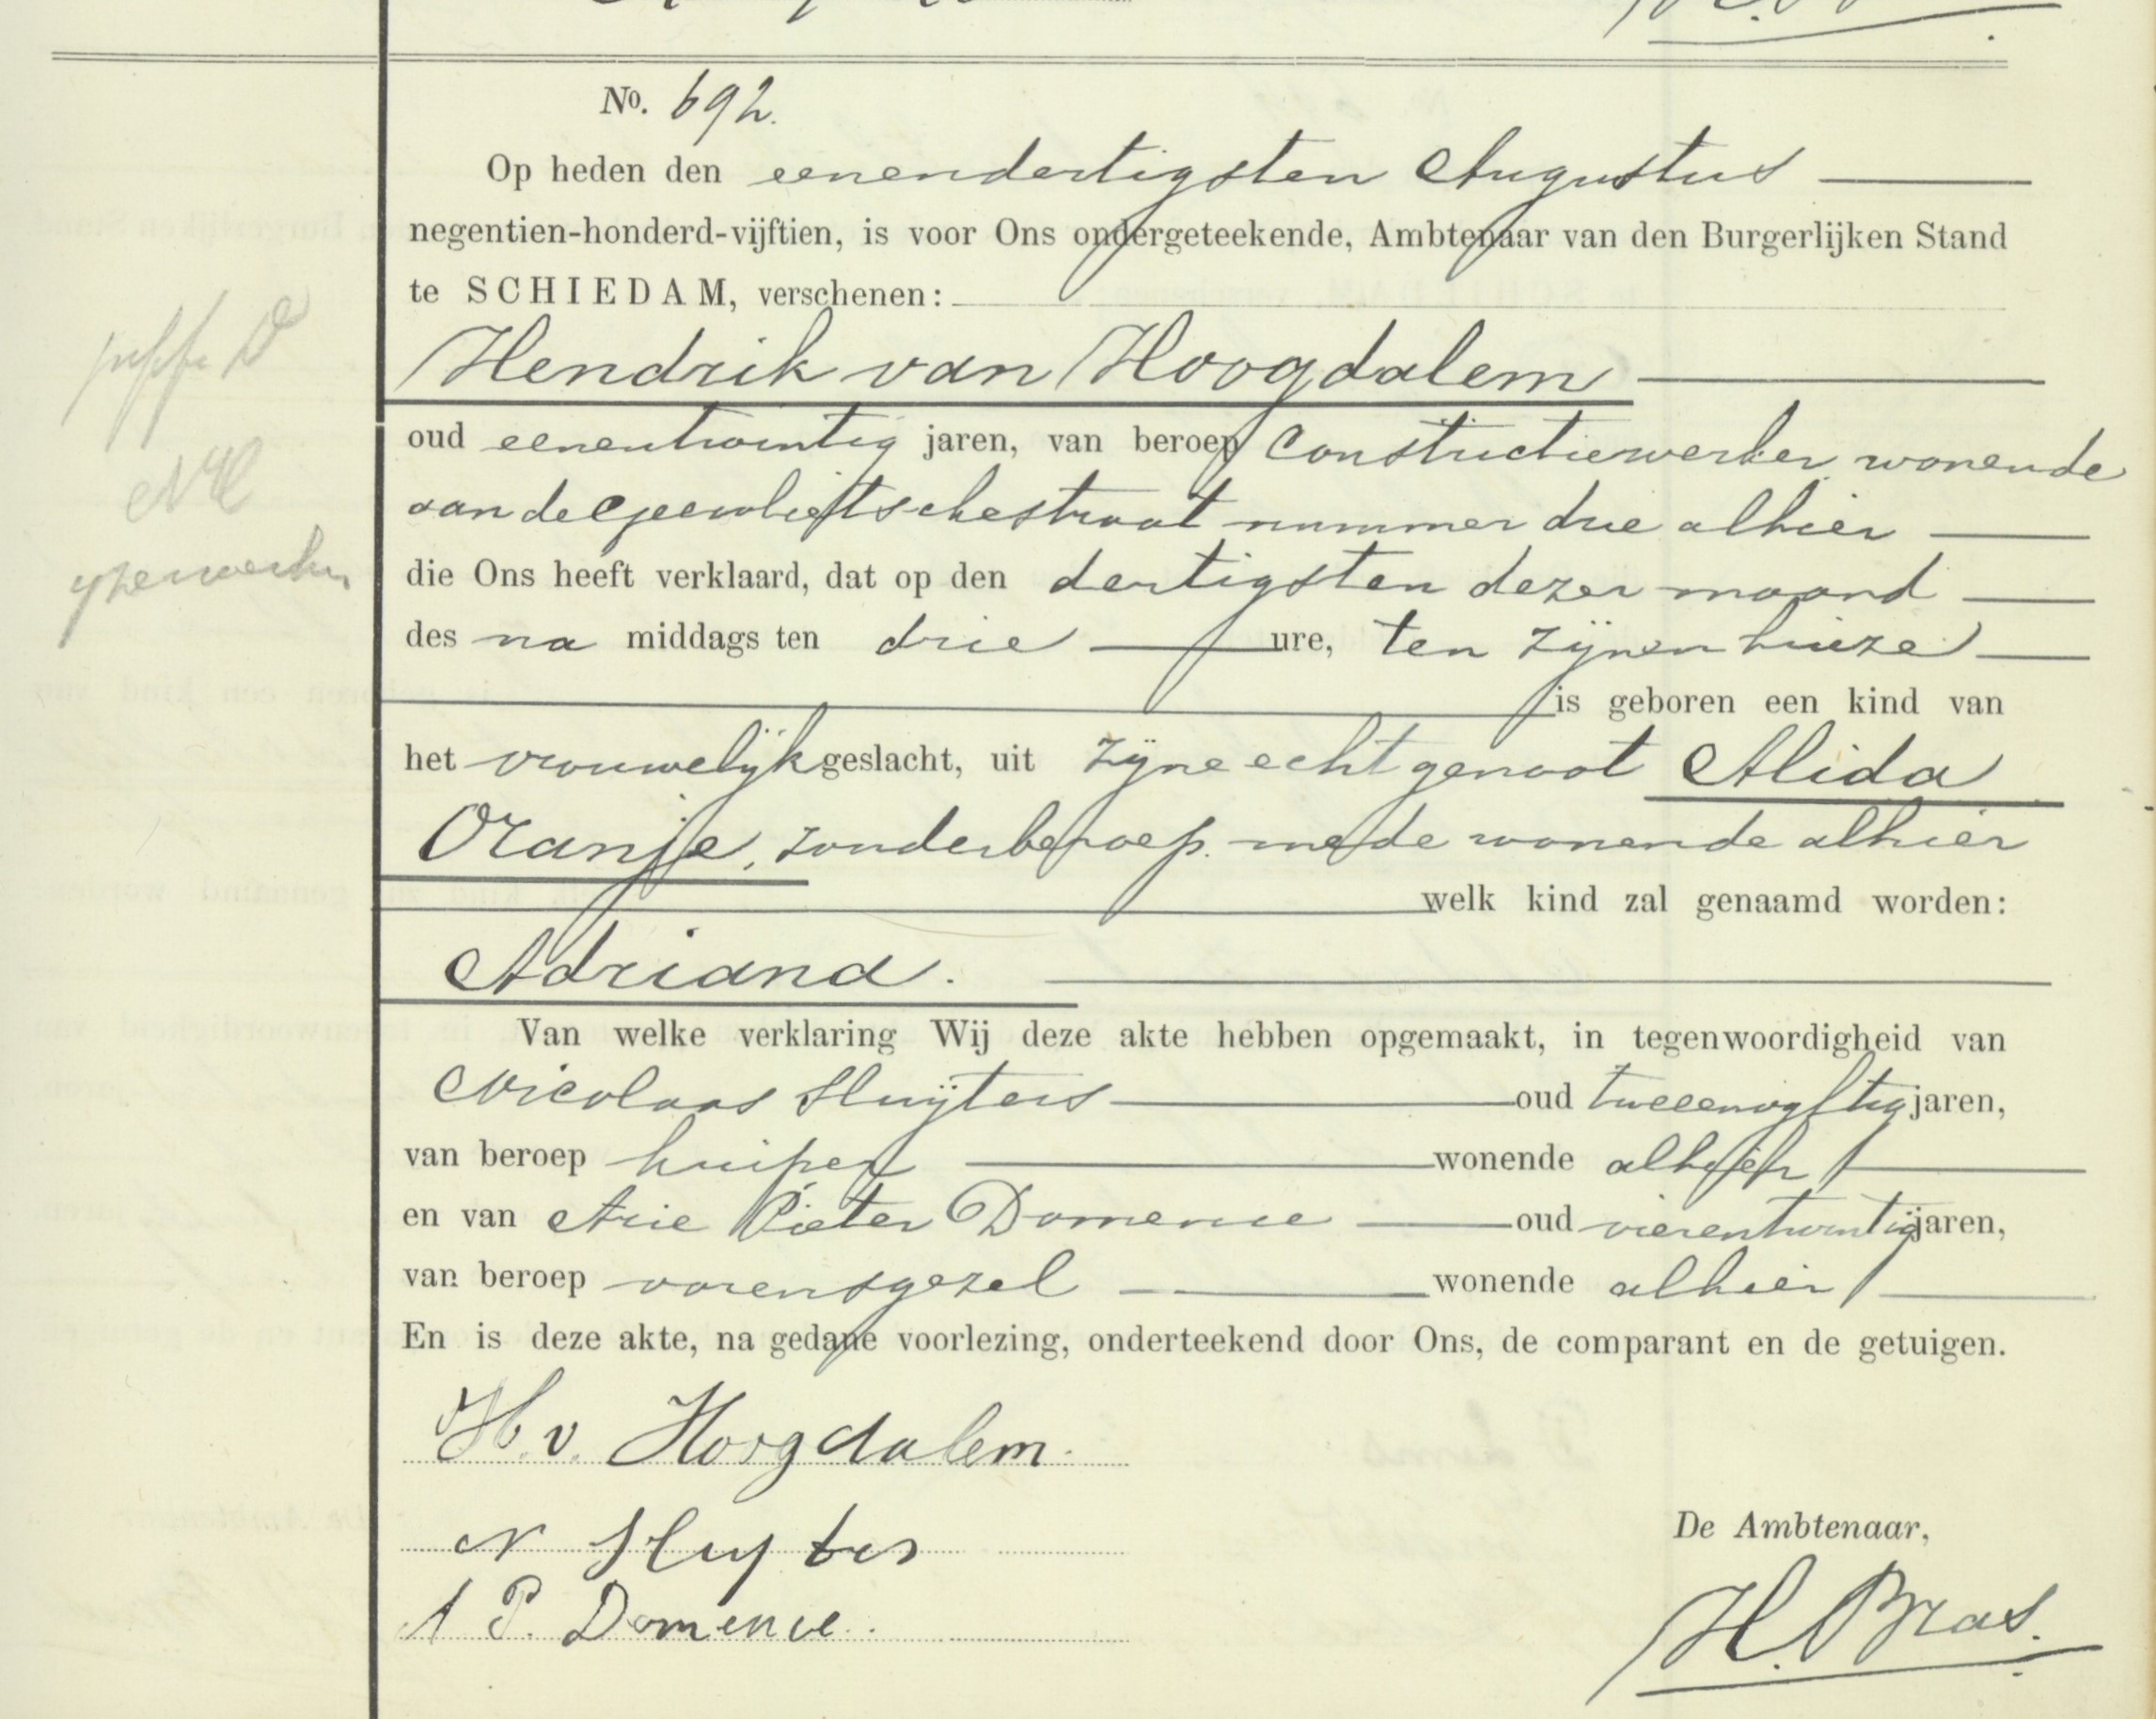 No. 692.
Op heden den eenendertigsten Augustus
negentien-honderd-vijftien, is voor Ons ondergeteekende, Ambtenaar van den Burgerlijken Stand
te SCHIEDAM, verschenen:
Hendrik van Hoogdalem
oud eenentwintig jaren, van beroep Constructiewerker wonende
aan de Geervlietschestraat nummer drie alhier
NH
yzerwerker
die Ons heeft verklaard, dat op den dertigsten dezer maand
des na middags ten drie ure, ten zijnen huize
is geboren een kind van
het vrouwelijk geslacht, uit zijne echtgenoot Alida
Oranje, zonder beroep mede wonende alhier
welk kind zal genaamd worden:
Adriana.
Van welke verklaring Wij deze akte hebben opgemaakt, in tegenwoordigheid van
Nicolaas Sluijters oud tweeenvijftig jaren,
van beroep kuiper wonende alhier
en van Arie Pieter Domence oud vierentwintig jaren,
van beroep vorensgezel wonende alhier
En is deze akte, na gedane voorlezing, onderteekend door Ons, de comparant en de getuigen.
H. v. Hoogdalem.
N Sluyters
A P. Domence.
De Ambtenaar,
H. Bras.